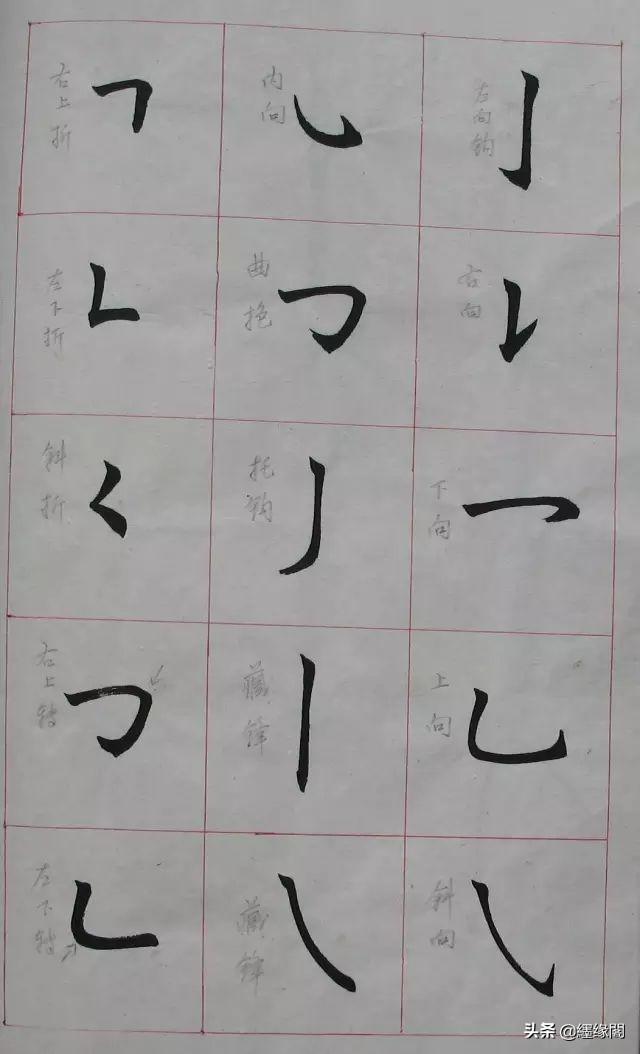 左向钩
右向
下向
上向
斜向
内向
曲抱
托钩
藏锋
藏锋
右上折
左下折
斜折
右上转
左下转
头条